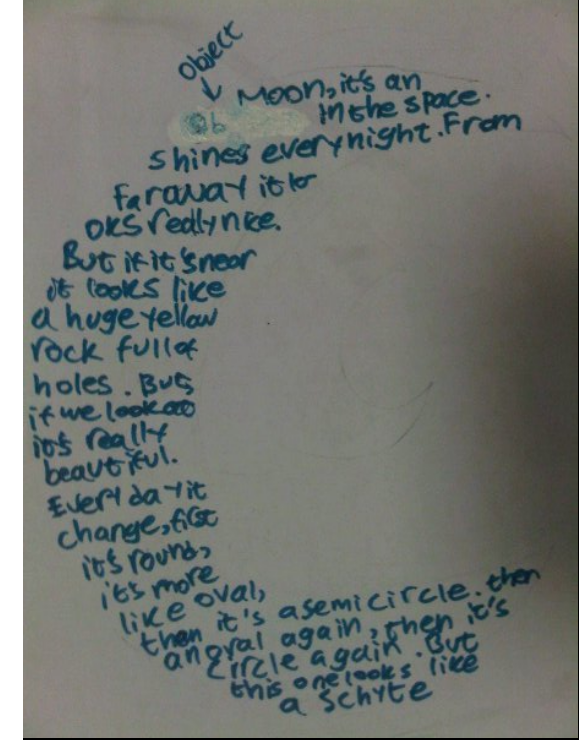 Object
Moon, it's an
Ob in the space.
shines every night. From
faraway it lo
oks really nice.
But if it's near
it looks like
a huge yellow
rock full of
holes. But
if we look
it's really
beautiful.
Every day it
change, first
it's round,
it's more
like oval,
then it's a semicircle. then
an oval again, then it's
circle again. But
this one looks like
a schyte